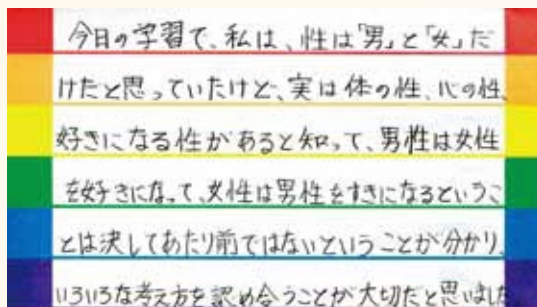 今日の学習で、私は、性は「男」と「女」だ
けたと思っていたけど、実は体の性、心の性、
好きになる性があると知って、男性は女性
を好きになって、女性は男性をすきになるというこ
とは決してあたり前ではないということが分かり、
いろいろな考え方を認め合うことが大切だと思いました。